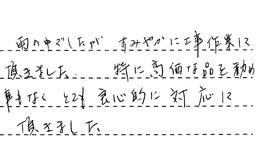 雨の中でしたが すみやかに工事作業に
頂きました. 特に高価な品を勧め
事もなく とても良心的に対応に
頂きました